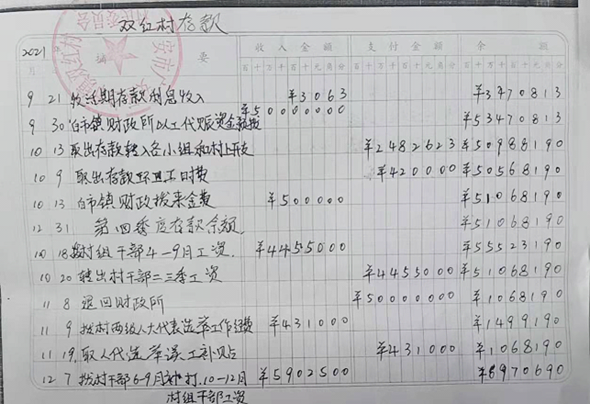 双红村存款
2021 收入金额 支付金额 余额
月 摘要 百十万千百十元角分 百十万千百十元角分 百十万千百十元角分
9 21 收活期存款利息收入 ¥3063 ¥3470813
9 30 白市镇财政所以工代赈资金 ¥50000000 ¥53470813
10 13 取出存款转入各小组和村上开支 ¥2482623 ¥50988190
10 9 取出存款环卫工时费 ¥420000 ¥50568190
10 13 白市镇财政拨来金费 ¥500000 ¥51068190
12 31 第四季度存款余额 ¥51068190
10 18 拨村组干部4-9月工资. ¥4455000 ¥55523190
10 20 转出村干部二三季工资 ¥4455000 ¥51068190
11 8 退回财政所 ¥50000000 ¥1068190
11 9 拨村两级人大代表选举工作经费 ¥431000 ¥1499190
11 19 取人代选举误工补贴 ¥431000 ¥1068190
12 7 拨村干部6-9月补打.10-12月 ¥5902500 ¥6970690
村组干部工资